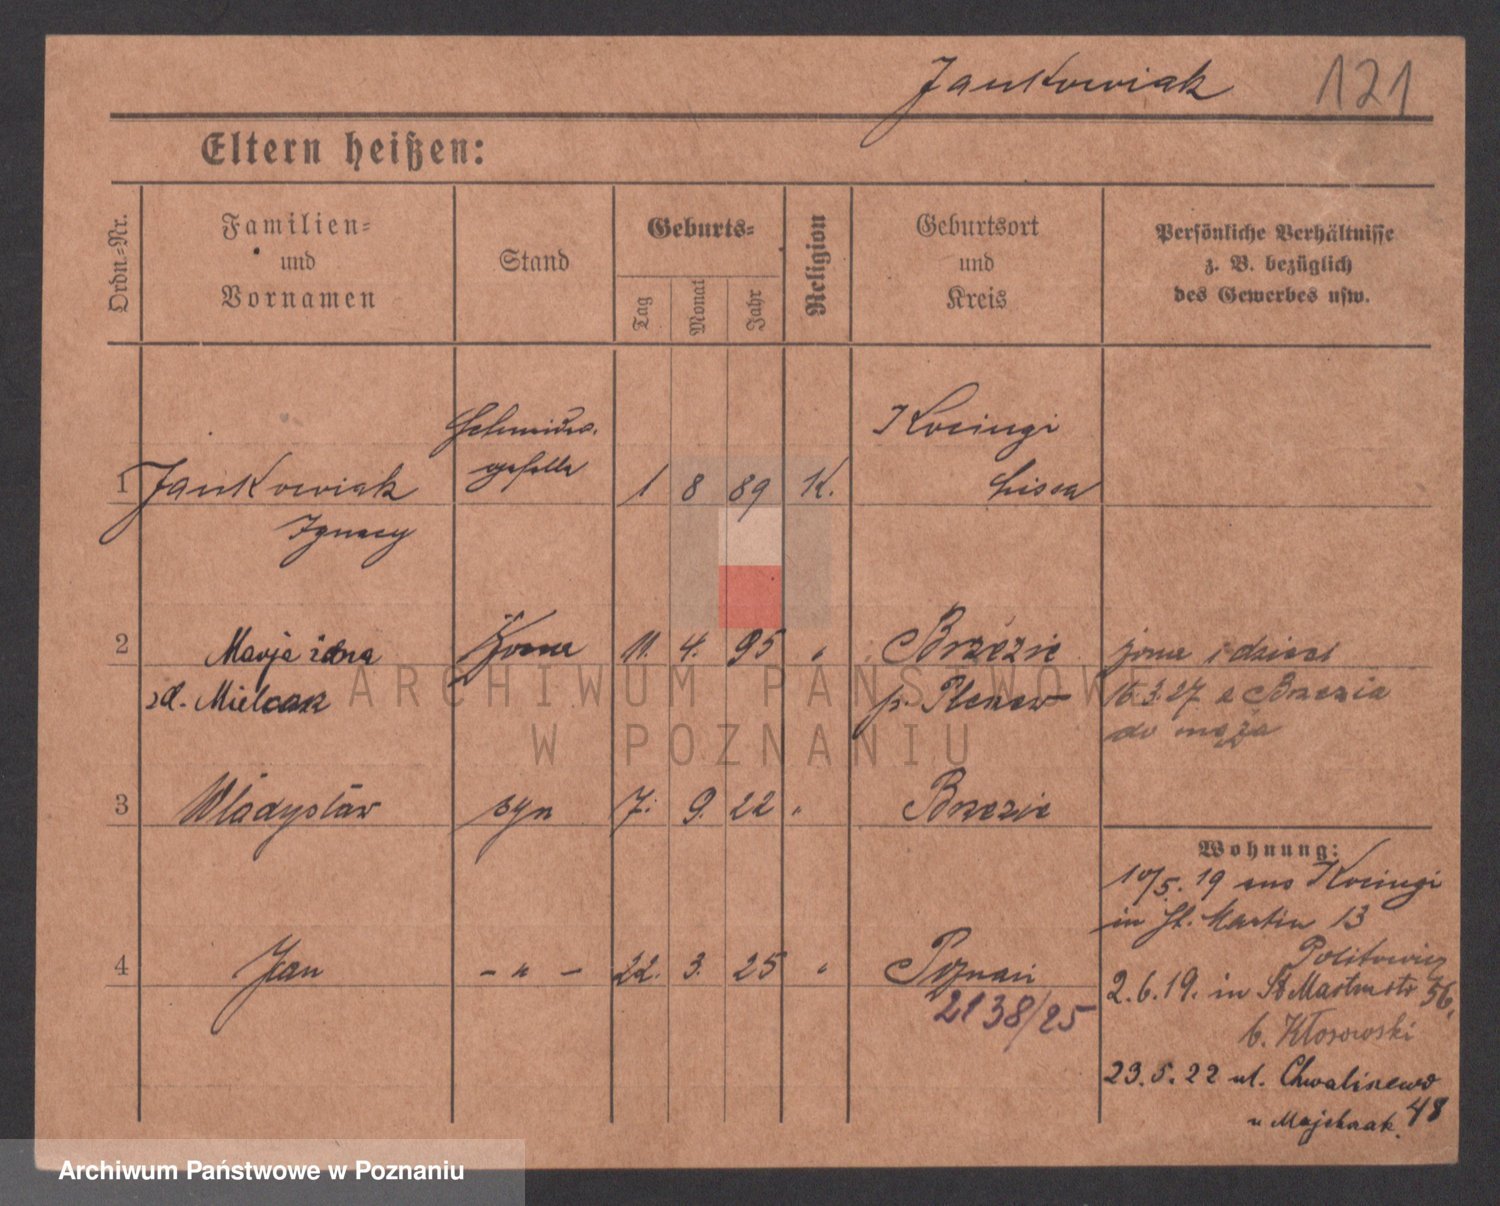 Jankowiak 121
Eltern heißen:
Ordn.-Nr.
Familien- und Vornamen
Stand
Geburts-
Tag
Monat
Jahr
Religion
Geburtsort und Kreis
Persönliche Verhältnisse z. B. bezüglich des Gewerbes usw.
Schmiede-
geselle
Kocingi
1 Jankowiak 1 8 89 K. Lissa
Ignacy
2 Marja żona 11. 4. 95 " Brzezie żona i dzieci
zd. Mielcak p. Pleszew 16.3.27 z Brzezia
do męża
3 Władysław syn 7. 9. 22 " Brzezie
Wohnung:
10/5. 19 aus Kocingi
in St. Martin 13
4 Jan - " - 22. 3. 25 " Poznań
2138/25
2.6.19. in St Martinstr 56,
b. Kłosowski
23.5.22 ul. Chwaliszewo
48
ARCHIWUM PAŃSTWOWE
W POZNANIU
Archiwum Państwowe w Poznaniu